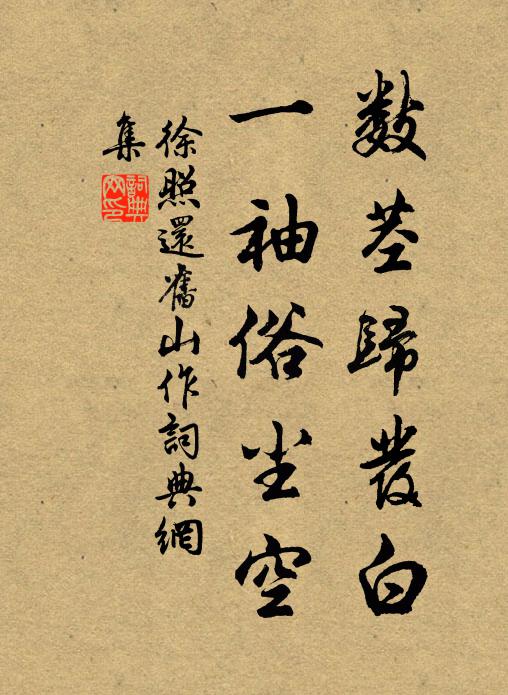 數莖歸發白
一袖俗塵空
徐照還舊山作詞典網
集
詞典
网印